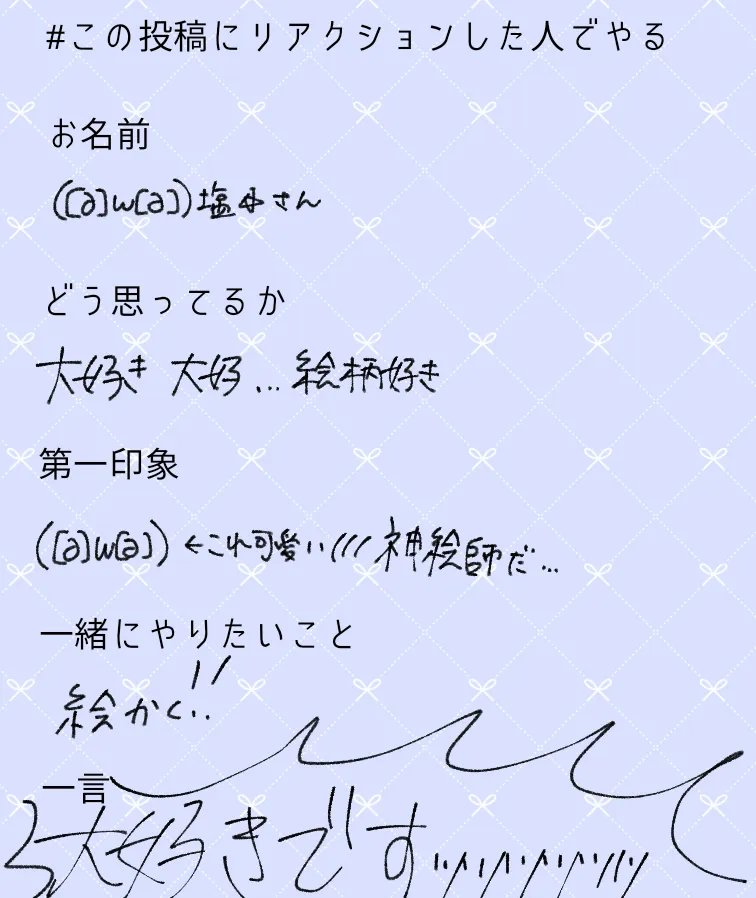 #この投稿にリアクションした人でやる
お名前
([∂]w[∂])塩水さん
どう思ってるか
大好き 大好...絵柄好き
第一印象
([∂]w[∂])←これ可愛い///神絵師だ...
一緒にやりたいこと
絵かく!!
一言
大好きです